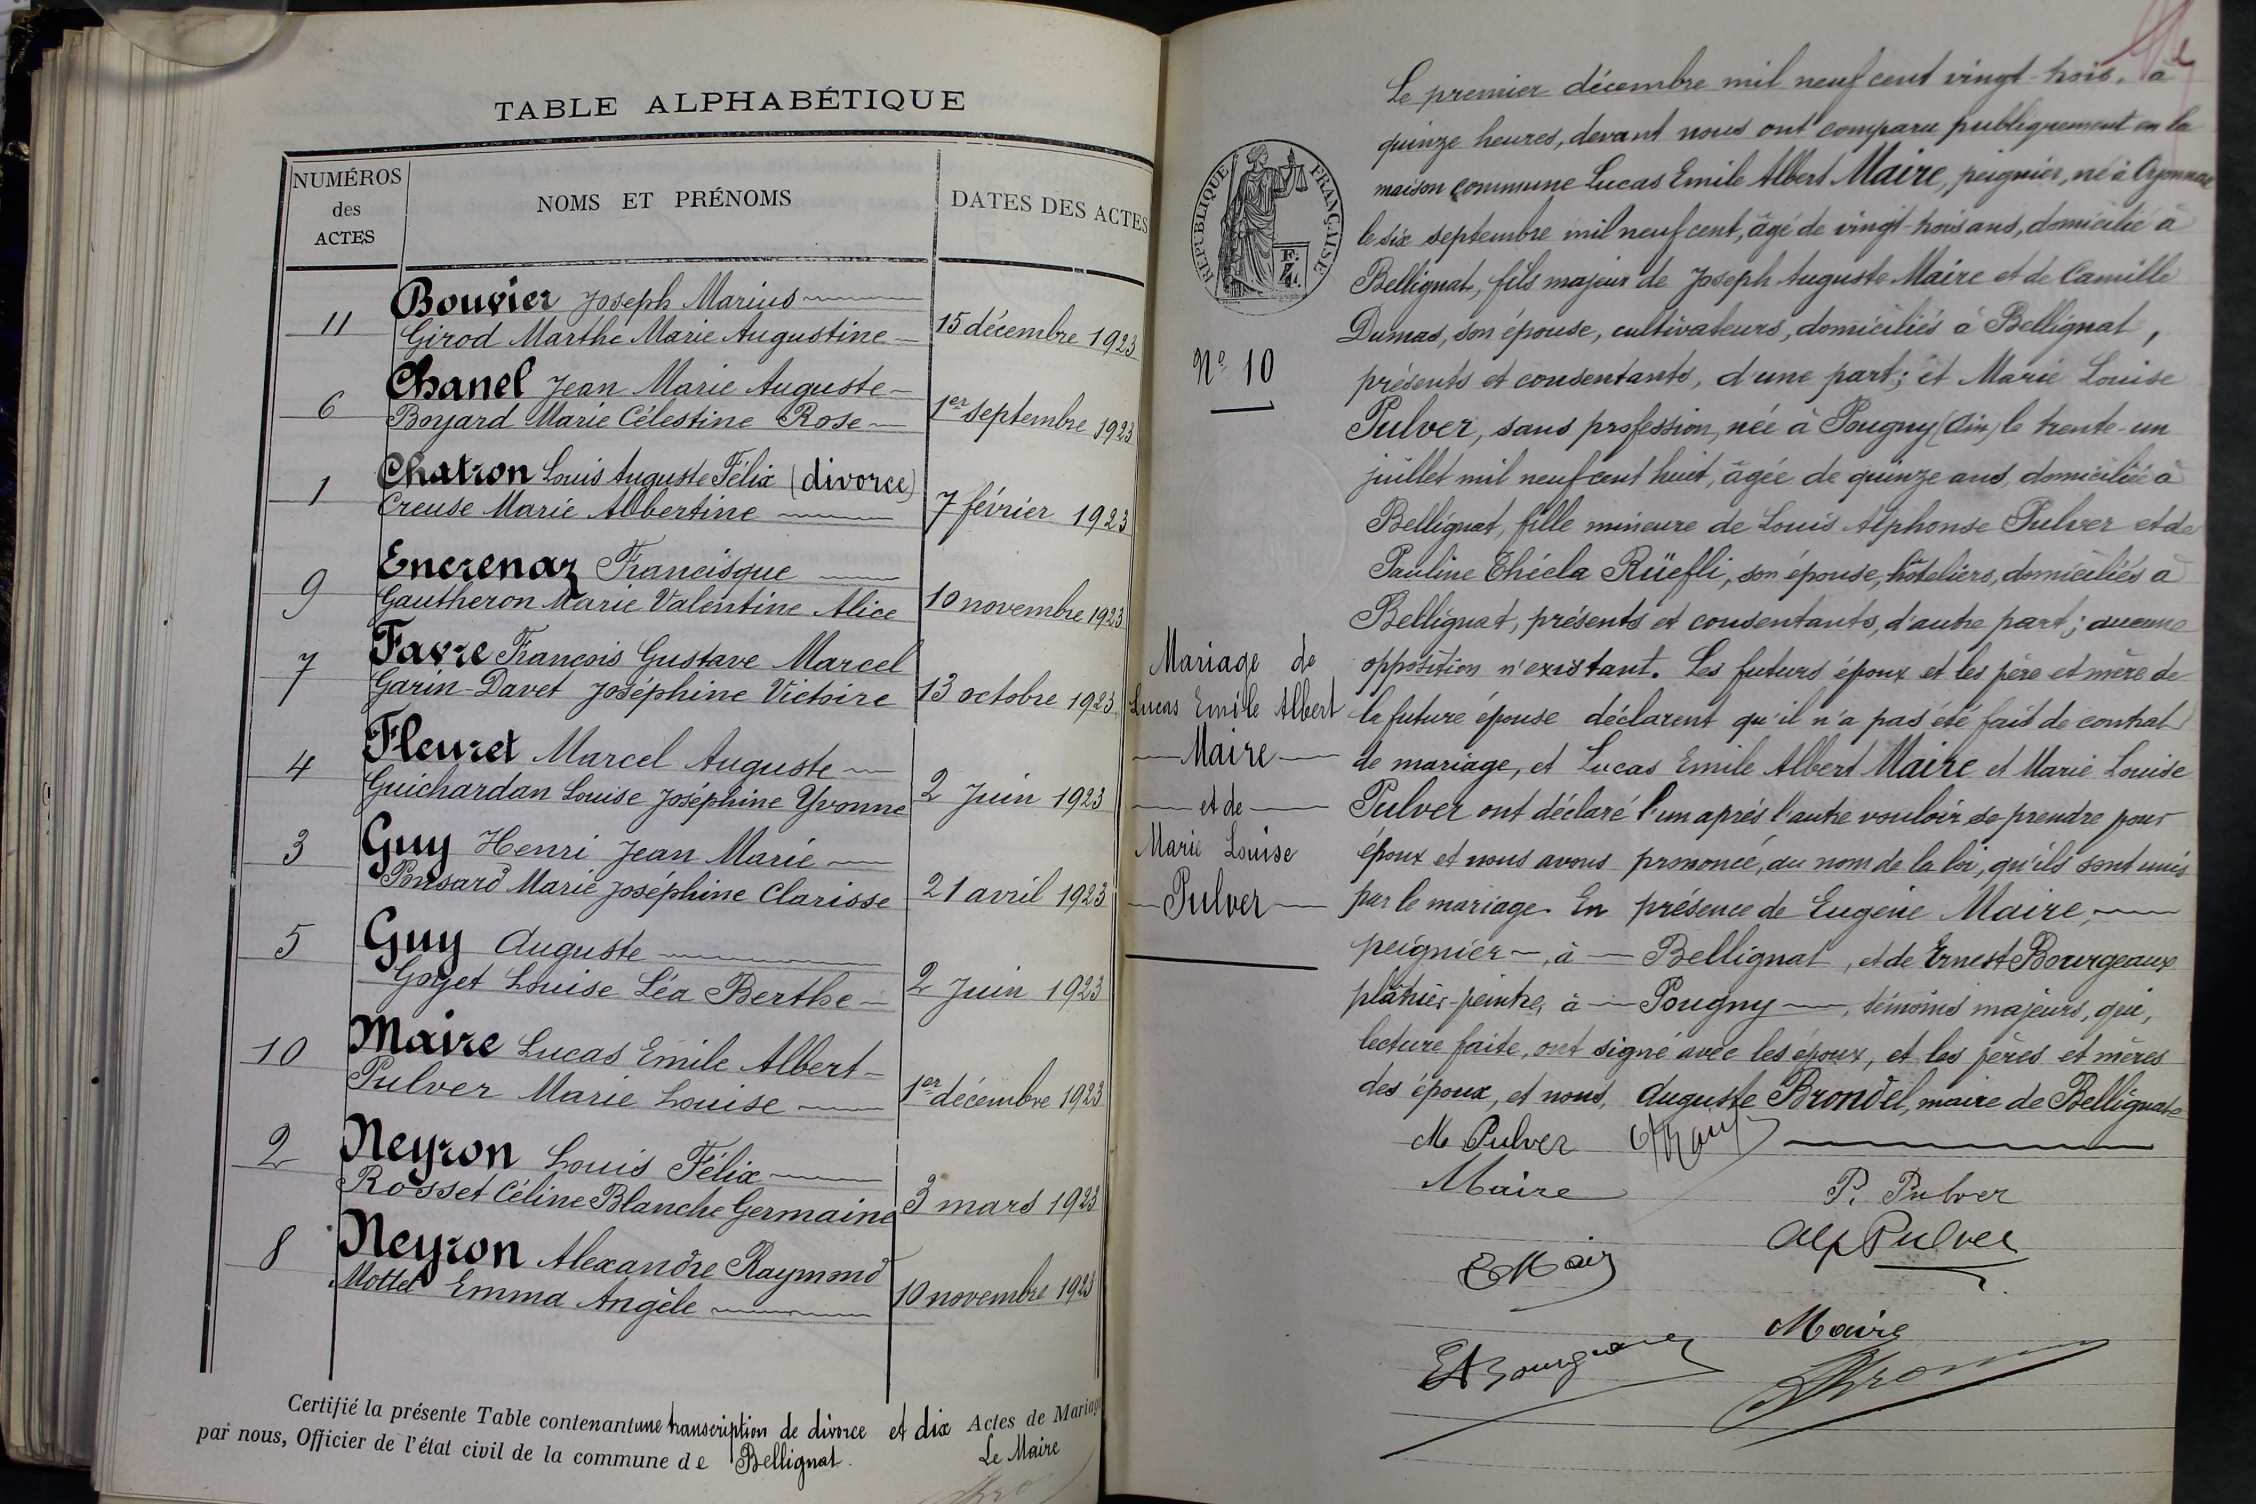 TABLE ALPHABÉTIQUE
NUMÉROS des ACTES
NOMS ET PRÉNOMS
DATES DES ACTES
11 Bouvier Joseph Marius
Girod Marthe Marie Augustine 15 décembre 1923
6 Chanel Jean Marie Auguste
Boyard Marie Célestine Rose 1er septembre 1923
1 Chatron Louis Auguste Félix (divorce)
Creuse Marie Albertine 7 février 1923
9 Encrenaz Francisque
Gautheron Marie Valentine Alice 10 novembre 1923
7 Favre François Gustave Marcel
Garin-Davet Joséphine Victoire 13 octobre 1923
4 Fleuret Marcel Auguste
Guichardan Louise Joséphine Yvonne 2 Juin 1923
3 Guy Henri Jean Marie
Ponsard Marie Joséphine Clarisse 21 avril 1923
5 Guy Auguste
Goyet Louise Léa Berthe 2 Juin 1923
10 Maire Lucas Emile Albert
Pulver Marie Louise 1er décembre 1923
2 Neyron Louis Félix
Rosset Céline Blanche Germaine 3 mars 1923
8 Neyron Alexandre Raymond
Mottet Emma Angèle 10 novembre 1923
Certifié la présente Table contenant une transcription de divorce et dix Actes de Mariage
par nous, Officier de l'état civil de la commune de Bellignat.
Le Maire
RÉPUBLIQUE FRANÇAISE
N° 10
Mariage de
Lucas Emile Albert
Maire
et de
Marie Louise
Pulver
Le premier décembre mil neuf cent vingt-trois, à
quinze heures, devant nous ont comparu publiquement en la
maison commune Lucas Emile Albert Maire, peignier, né à Oyonnax
le six septembre mil neuf cent, âgé de vingt-trois ans, domicilié à
Bellignat, fils majeur de Joseph Auguste Maire et de Camille
Dumas, son épouse, cultivateurs, domiciliés à Bellignat,
présents et consentants, d'une part; et Marie Louise
Pulver, sans profession, née à Pougny (Ain) le trente-un
juillet mil neuf cent huit, âgée de quinze ans, domiciliée à
Bellignat, fille mineure de Louis Alphonse Pulver et de
Pauline Thécla Rüefli, son épouse, hôteliers, domiciliés à
Bellignat, présents et consentants, d'autre part; aucune
opposition n'existant. Les futurs époux et les père et mère de
la future épouse déclarent qu'il n'a pas été fait de contrat
de mariage, et Lucas Emile Albert Maire et Marie Louise
Pulver ont déclaré l'un après l'autre vouloir se prendre pour
époux et nous avons prononcé, au nom de la loi, qu'ils sont unis
par le mariage. En présence de Eugène Maire,
peignier, à Bellignat, et de Ernest Bourgeaux
plâtrier-peintre, à Pougny, témoins majeurs, qui,
lecture faite, ont signé avec les époux, et les pères et mères
des époux, et nous, Auguste Brondel, maire de Bellignat
M Pulver
Maire
P. Pulver
Alp Pulver
Maire